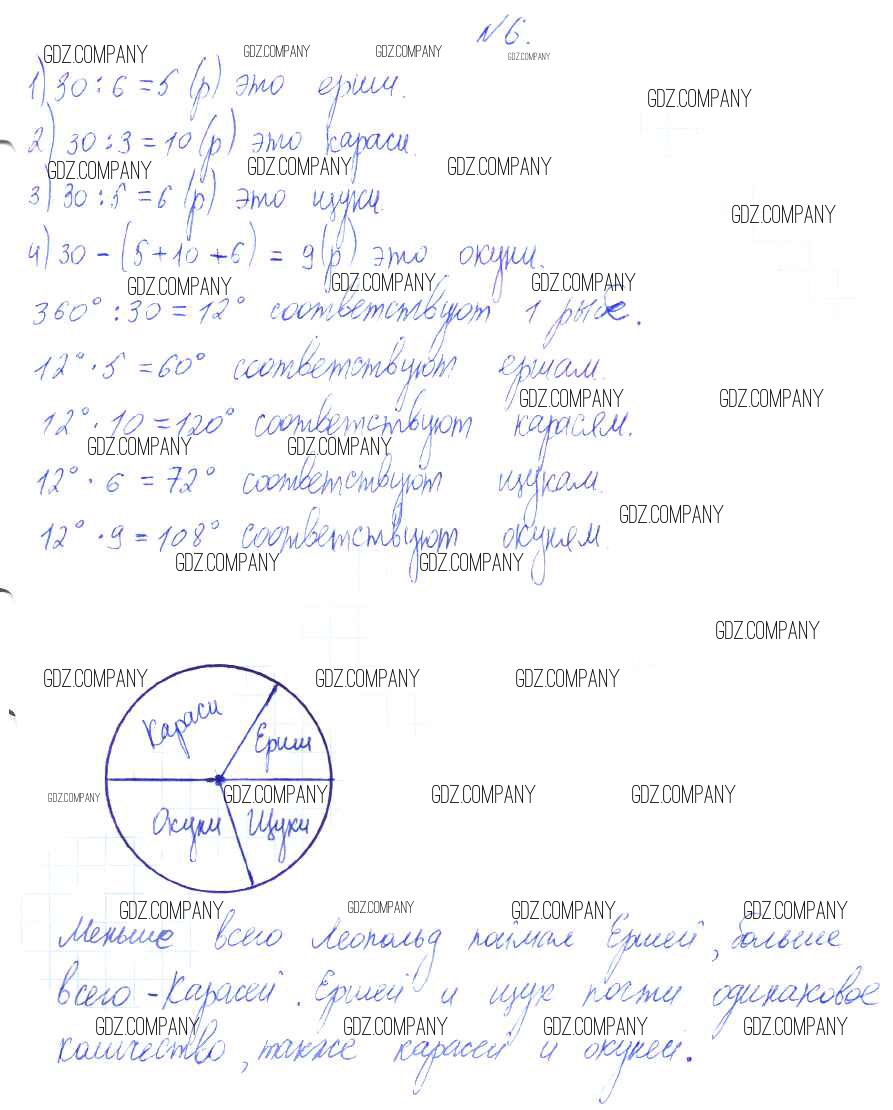 №6.
GDZ.COMPANY GDZ.COMPANY GDZ.COMPANY GDZ.COMPANY
1) 30 : 6 = 5 (р) это ерши.
GDZ.COMPANY
2) 30 : 3 = 10 (р) это караси.
GDZ.COMPANY GDZ.COMPANY GDZ.COMPANY
3) 30 : 5 = 6 (р) это щуки.
GDZ.COMPANY
4) 30 - (5 + 10 + 6) = 9 (р) это окуни.
GDZ.COMPANY GDZ.COMPANY GDZ.COMPANY
360° : 30 = 12° соответствуют 1 рыбе.
12° · 5 = 60° соответствуют ершам.
GDZ.COMPANY GDZ.COMPANY
12° · 10 = 120° соответствуют карасям.
GDZ.COMPANY GDZ.COMPANY
12° · 6 = 72° соответствуют щукам.
GDZ.COMPANY
12° · 9 = 108° соответствуют окуням.
GDZ.COMPANY GDZ.COMPANY
GDZ.COMPANY
GDZ.COMPANY GDZ.COMPANY GDZ.COMPANY
Караси
Ерши
GDZ.COMPANY GDZ.COMPANY GDZ.COMPANY GDZ.COMPANY
Окуни Щуки
GDZ.COMPANY GDZ.COMPANY GDZ.COMPANY GDZ.COMPANY
Меньше всего Леопольд поймал Ершей, больше
всего - Карасей. Ершей и щук почти одинаковое
GDZ.COMPANY GDZ.COMPANY GDZ.COMPANY GDZ.COMPANY
количество, также карасей и окуней.